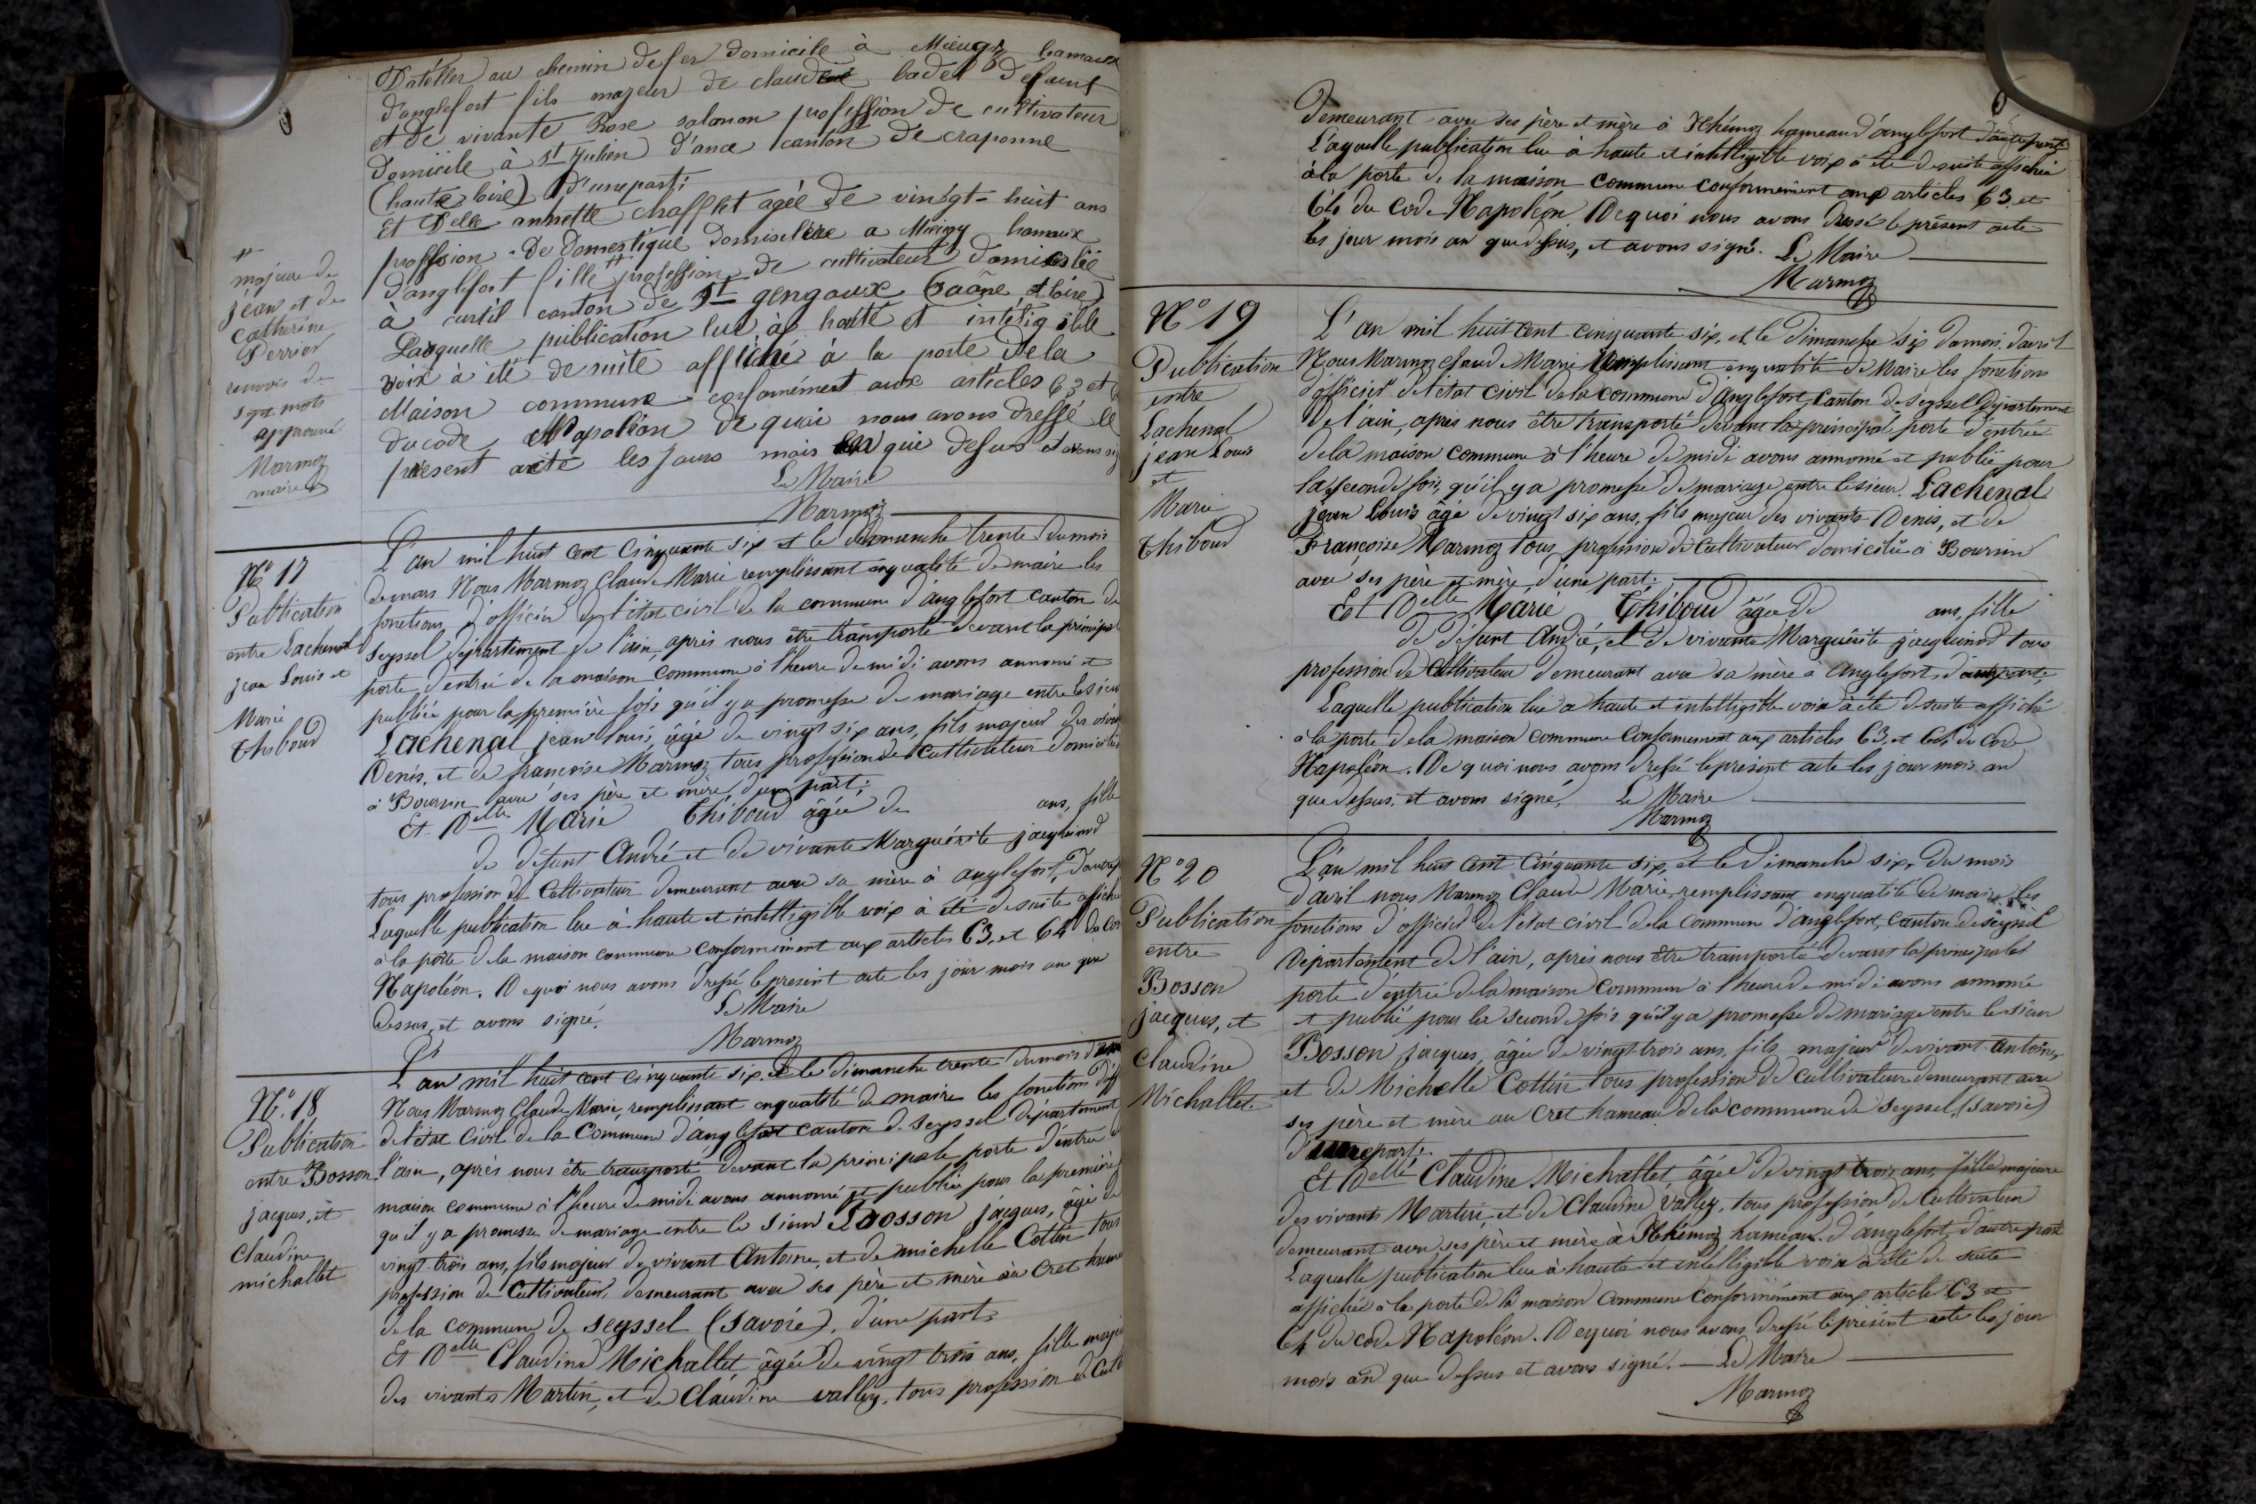 au chemin de fer domicile à hamaux
d'anglefort fils majeur de claude badel defunt
et de vivante Rose salomon profession de cultivateur
domicile à St julien d'ance canton de craponne
(haute loire) d'une part;
Et Delle annette chafflet agée de vinigt-huit ans
proffesion de Domestique domiciliée a hamaux
d'anglefort fille # profession de cultivateur domicilié
à curtil canton de St gengoux (Saône et loire)
Laquelle publication lue à haute et intéligible
voix à été de suite affiché à la porte de la
Maison commune conformément aux articles 63 et
du code Napoléon de quoi nous avons dressé le
présent acte les jours mois que desus et avons
Le Maire
Marmoz
#
majeure de
jean et de
Catherine
Perrier
renvois de
sept mots
approuvé
Marmoz
maire
N° 17
Publication
entre Lachenal
jean Louis et
Marie
Thiboud
L'an mil huit cent cinquante six et le dimanche trente du mois
de mars Nous Marmoz Claude Marie remplissant enqualité de maire les
fonctions d'officier de l'état civil de la commune d'anglefort canton de
Seyssel département de l'ain, après nous être transporté devant la principal
porte d'entrée de la maison commune à l'heure de midi avons annoncé et
publiée pour la première fois qu'il y a promesse de mariage entre le sieur
Lachenal jean louis, âgé de vingt six ans, fils majeur des
Denis, et de françoise Marmoz tous profession de cultivateur domicilié
à Boursin avec ses père et mère d'une part;
Et Delle Marie Thiboud âgée de ans, fille
de défunt André et de vivante Marguérite jacquinod
tous profession de Cultivateur demeurant avec sa mère à anglefort,
Laquelle publication lue à haute et intelligible voix à été de suite affichée
à la porte de la maison commune conformément aux articles 63, et 64 du
Napoléon. De quoi nous avons dressé le présent acte les jour mois an que
dessus, et avons signé.
Le Maire
Marmoz
N° 18
Publication
entre Bosson
jacques, et
Claudine
michallet
L'an mil huit cent cinquante six. et le dimanche trente du mois
Nous Marmoz Claude Marie, remplissant enqualité de maire les fonctions
de l'état civil de la Commune d'anglefort canton de Seyssel département
l'ain, après nous être transporté devant la principale porte d'entrée
maison commune à l'heure de midi avons annoncé et publiée pour la première
qu'il y a promesse de mariage entre le sieur Bosson jacques, âgé de
vingt trois ans, fils majeur de vivant Antoine, et de michelle Cottin tous
profession de Cultivateur, demeurant avec ses père et mère au Cret
de la commune de Seyssel (Savoie). d'une part.
Et Delle Claudine Michallet âgée de vingt trois ans, fille
des vivants Martin, et de Claudine valley, tous profession de
demeurant avec ses père et mère à Rhémoz hameau d'anglefort d'autre part
Laquelle publication lue à haute et intelligible voix à été de suite affichée
à la porte de la maison commune conformément aux articles 63 et
64 du Code Napoléon De quoi nous avons dressé le présent acte
les jour mois an que dessus, et avons signé. Le Maire
Marmoz
N° 19
Publication
entre
Lachenal
jean Louis
et
Marie
Thiboud
L'an mil huit cent cinquante six, et le dimanche six du mois d'avril
Nous Marmoz Claude Marie remplissant enqualité de Maire les fonctions
d'officier de l'état civil de la commune d'anglefort Canton de Seyssel département
de l'ain, après nous être transporté devant la principale porte d'entrée
de la maison commune à l'heure de midi avons annoncé et publié pour
la seconde fois, qu'il y a promesse de mariage entre le sieur Lachenal
jean Louis âgé de vingt six ans, fils majeur des vivants Denis, et de
Françoise Marmoz tous profession de Cultivateur domicilié à Boursin
avec ses père et mère d'une part.
Et Delle Marie Thiboud âgée de ans, fille
de défunt André, et de vivante Marguérite jacquinod tous
profession de Cultivateur demeurant avec sa mère à anglefort d'autre part
Laquelle publication lue à haute et intelligible voix à été de suite affiché
à la porte de la maison commune conformément aux articles 63, et 64 du Code
Napoléon. De quoi nous avons dressé le présent acte les jour mois an
que dessus. et avons signé. Le Maire
Marmoz
N° 20
Publication
entre
Bosson
jacques, et
Claudine
Michallet.
L'an mil huit cent cinquante six, et le dimanche six, du mois
d'avril nous Marmoz Claude Marie, remplissant enqualité de maire les
fonctions d'officier de l'état civil de la commune d'anglefort, canton de Seyssel
Département de l'ain, après nous être transporté devant la principale
porte d'entrée de la maison commune à l'heure de midi avons annoncé
et publié pour la seconde fois qu'il y a promesse de mariage entre le sieur
Bosson jacques, âgée de vingt trois ans, fils majeur de vivant antoine,
et de Michelle Cottin tous profession de cultivateur demeurant avec
ses père et mère au Cret hameau de la commune de Seyssel (savoie)
d'une part.
Et Delle Claudine Michallet, âgée de vingt trois ans, fille majeure
des vivants Martin, et de Claudine Valley, tous profession de Cultivateur
demeurant avec ses père et mère à Rhémoz hameau d'anglefort, d'autre part
Laquelle publication lue à haute et intelligible voix à été de suite
affichée à la porte de la maison commune conformément aux article 63 et
64 du code Napoléon. De quoi nous avons dressé le présent acte les jour
mois an que dessus et avons signé. — Le Maire
Marmoz